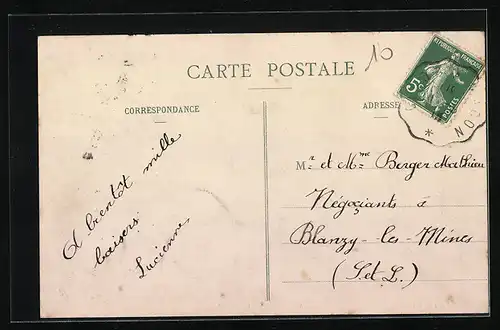 10
CARTE POSTALE
CORRESPONDANCE
ADRESSE
REPUBLIQUE FRANÇAISE
5c
POSTES
A bientôt mille
baisers
Lucienne
Mr et Mme Berger Mathieu
Négoçiants à
Blanzy-les-Mines
(S. et L.)